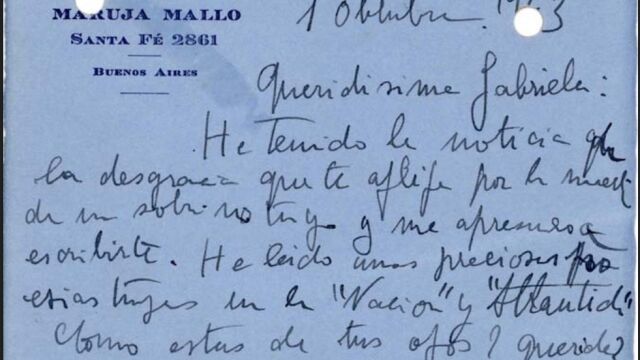 MARUJA MALLO
SANTA FÉ 2861
BUENOS AIRES
1 Octubre
Queridisima Gabriela:
He tenido la noticia de
la desgracia que te aflije por la muerte
de un sobrino tuyo y me apresuro a
escribirte. He leido unas preciosas po
esias tuyas en la "Nacion" y "Atlantida"
Como estas de tus ojos? querida?